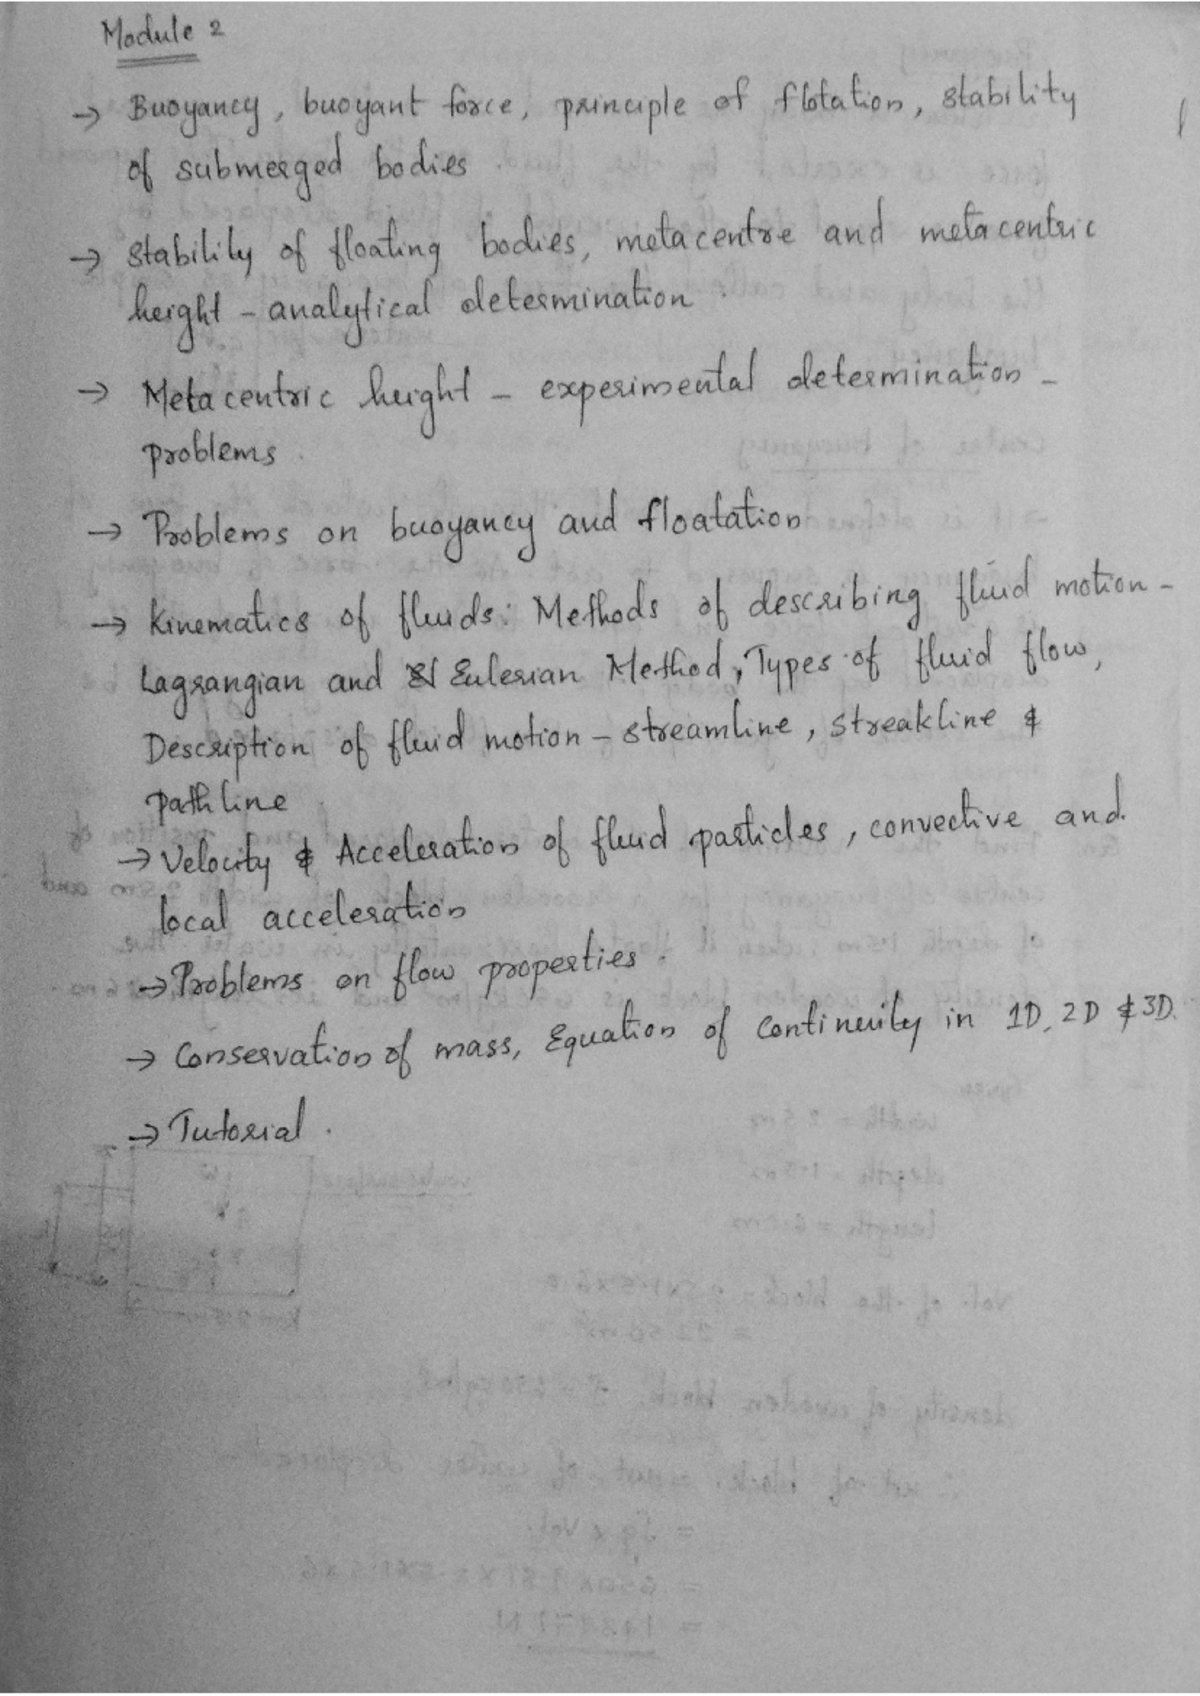 Module 2
→ Buoyancy, buoyant force, principle of flotation, stability
of submerged bodies
→ Stability of floating bodies, metacentre and metacentric
height - analytical determination
→ Metacentric height - experimental determination -
problems
→ Problems on buoyancy and floatation
→ Kinematics of fluids: Methods of describing fluid motion -
Lagrangian and Eulerian Method, Types of fluid flow,
Description of fluid motion - streamline, streakline &
pathline
→ Velocity & Acceleration of fluid particles, convective and
local acceleration
→ Problems on flow properties.
→ Conservation of mass, Equation of continuity in 1D, 2D & 3D.
→ Tutorial.